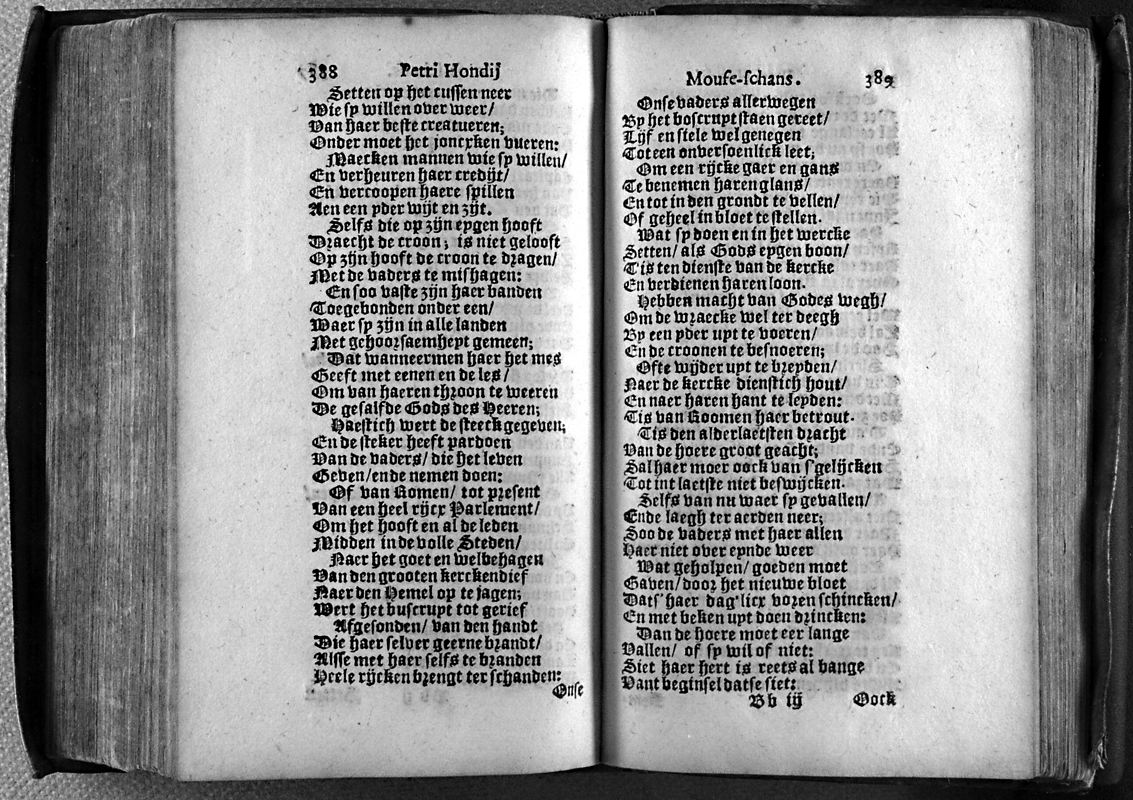 388 Petri Hondij
Setten op het cussen neer
Wie sp willen over weer/
Van haer beste creatueren;
Onder moet het joncxken vueren:
Maecken mannen wie sp willen/
En verheuren haer credijt/
En vercoopen haere spillen
Aen een pder wijt en zijt.
Selfs die op zijn epgen hooft
Draecht de croon; is niet gelooft
Op zijn hooft de croon te dragen/
Met de vaders te mishagen:
En soo vaste zijn haer banden
Toegebonden onder een/
Waer sp zijn in alle landen
Met gehoorsaemhept gemeen;
Dat wanneermen haer het mes
Geeft met eenen en de les/
Om van haeren throon te weeren
De gesalfde Gods des Heeren;
Haestich wert de steeck gegeven;
En de steker heeft pardoen
Van de vaders/ die het leven
Geven/ende nemen doen:
Of van Romen/ tot present
Van een heel rijcx Parlement/
Om het hooft en al de leden
Midden in de volle Steden/
Naer het goet en welbehagen
Van den grooten kerckendief
Naer den Hemel op te jagen;
Wert het buscrupt tot gerief
Afgesonden/ van den handt
Die haer selver geerne brandt/
Alsse met haer selfs te branden
Heele rijcken brengt ter schanden:
Onse
Mouse-schans. 389
Onse vaders allerwegen
By het boscrupt staen gereet/
Lijf en siele wel genegen
Tot een onversoenlick leet;
Om een rijcke gaer en gans
Te benemen haren glans/
En tot in den grondt te vellen/
Of geheel in bloet te stellen.
Wat sp doen en in het wercke
Setten/ als Gods epgen boon/
T'is ten dienste van de kercke
En verdienen haren loon.
Hebben macht van Godes wegh/
Om de wraecke wel ter deegh
By een pder upt te voeren/
En de croonen te besnoeren;
Ofte wijder upt te brepden/
Naer de kercke dienstich hout/
En naer haren hant te lepden:
Tis van Roomen haer betrout.
Tis den alderlaetsten dracht
Van de hoere groot geacht;
Sal haer moer oock van s'gelijcken
Tot int laetste niet beswijcken.
Selfs van nu waer sp gevallen/
Ende laegh ter aerden neer;
Soo de vaders met haer allen
Haer niet over epnde weer
Wat geholpen/ goeden moet
Gaven/ door het nieuwe bloet
Dats' haer dag'licx voren schincken/
En met beken upt doen drincken:
Dan de hoere moet eer lange
Vallen/ of sp wil of niet:
Siet haer hert is reets al bange
Vant beginsel datse siet:
Bb ij Oock